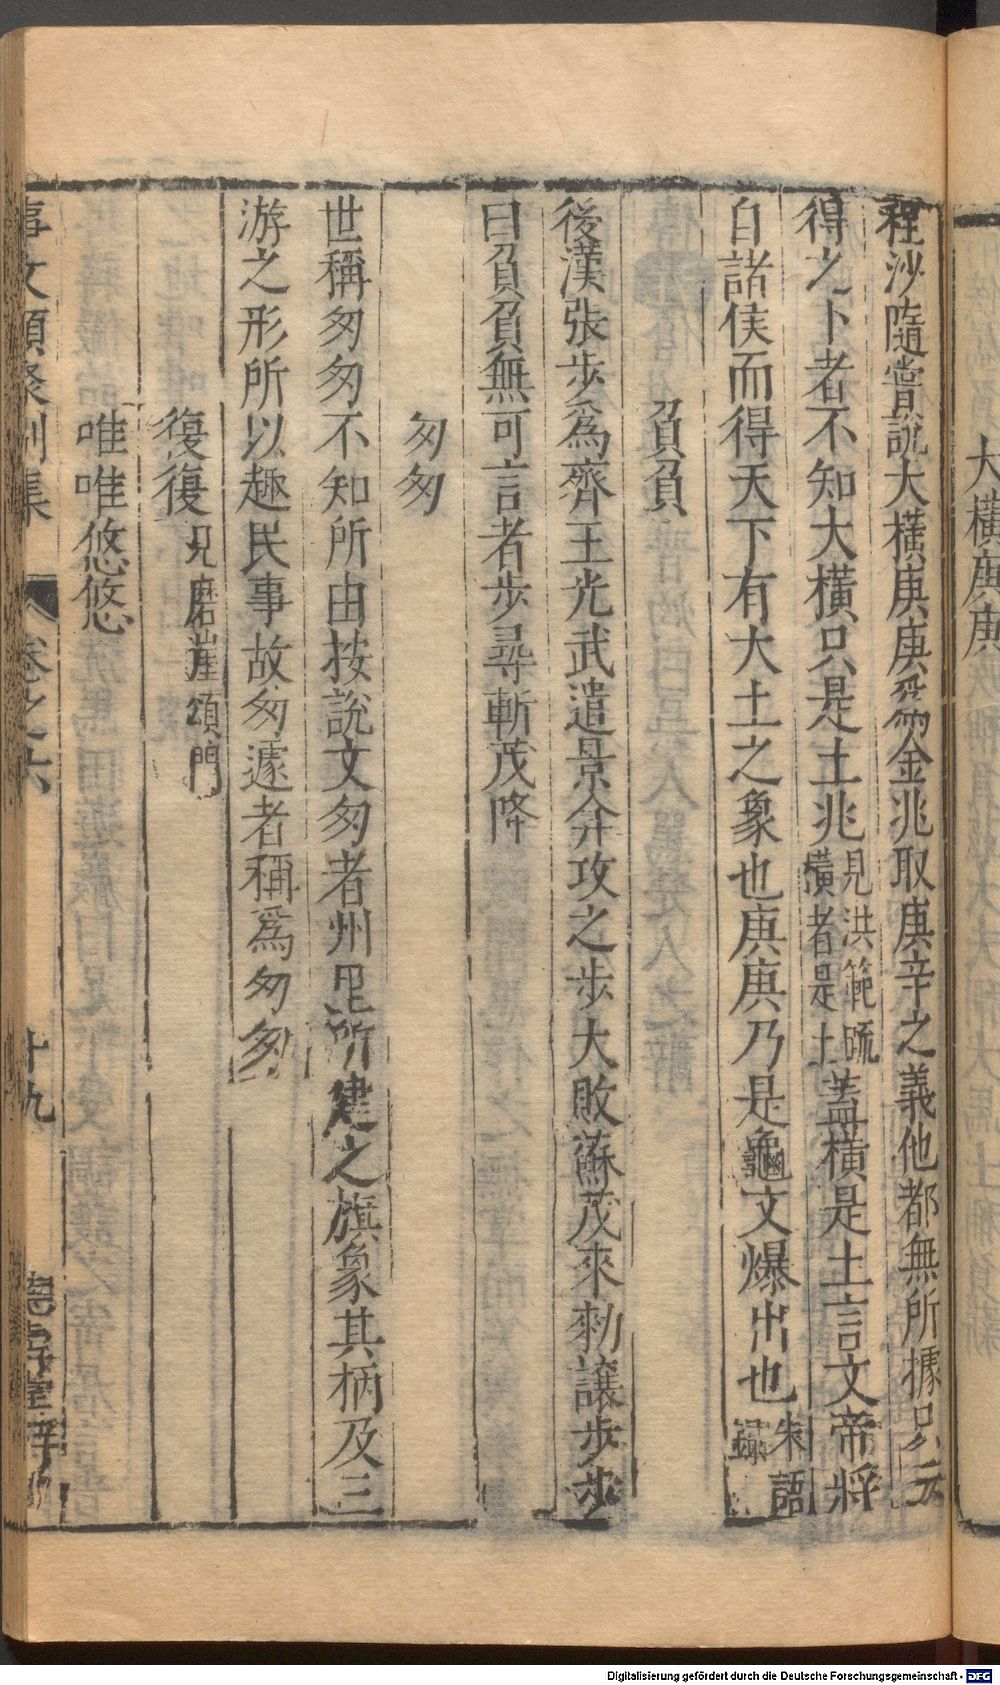 大橫庚庚
程沙隨嘗說大橫庚庚爲金兆取庚辛之義他都無所據只云
得之卜者不知大橫只是土兆見洪範疏橫者是土蓋橫是土言文帝將
自諸侯而得天下有大土之象也庚庚乃是龜文爆出也朱語録
負負
後漢張步爲齊王光武遣景弇攻之步大敗蘇茂來勑讓步步
曰負負無可言者步尋斬茂降
匆匆
世稱匆匆不知所由按說文匆者州里所建之旗象其柄及三
游之形所以趣民事故匆遽者稱爲匆匆
復復見磨崖頌門
唯唯悠悠
事文類聚別集 卷之六 十九
Digitalisierung gefördert durch die Deutsche Forschungsgemeinschaft - DFG